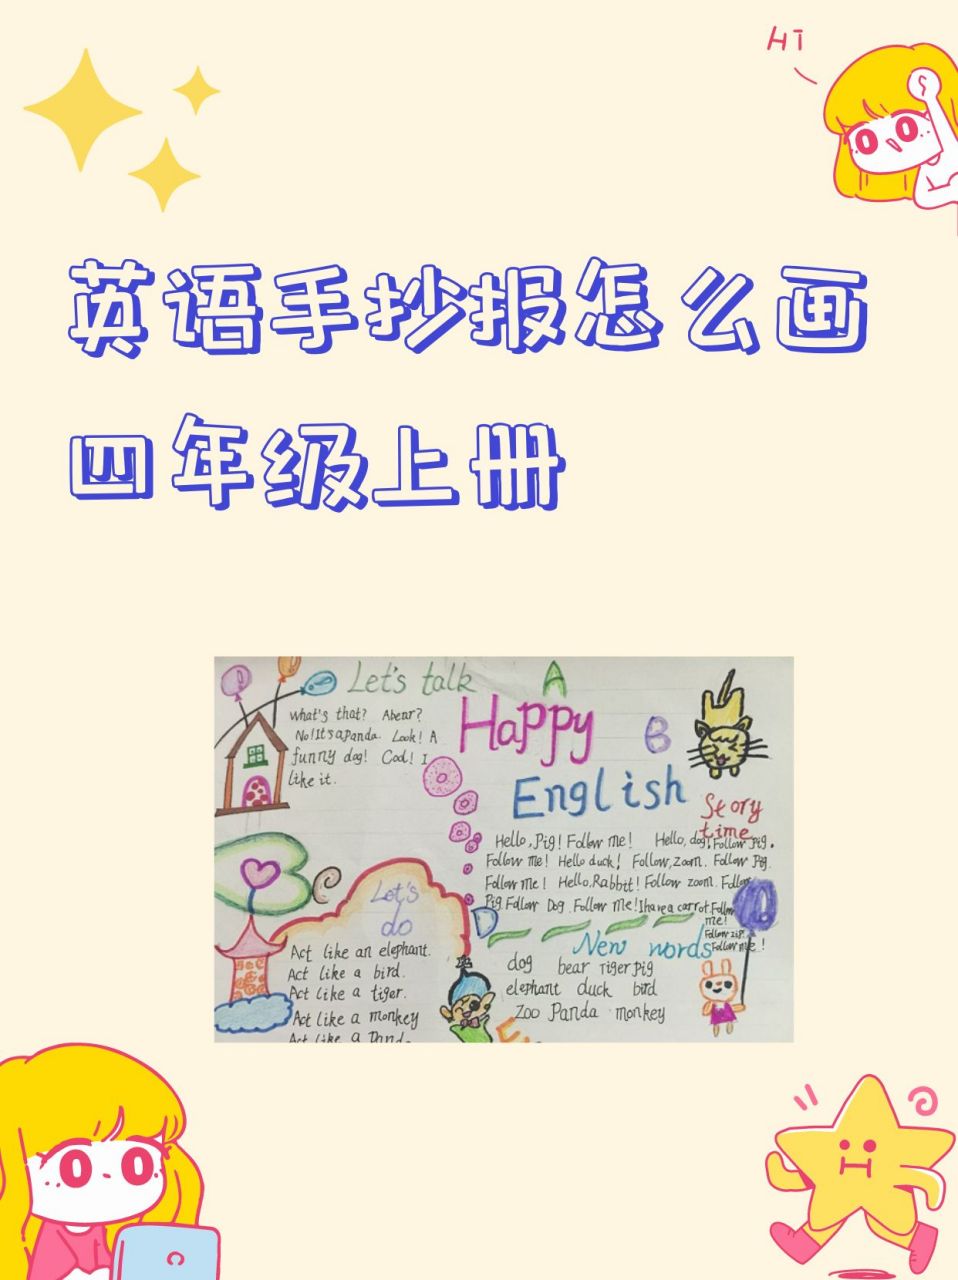 HI
英语手抄报怎么画
四年级上册
Let's talk
What's that? Abear?
No! It's a panda. Look! A
funny dog! Cool! I
like it.
A
Happy
B
English
Story
time
Hello, Pig! Follow me! Hello, dog! Follow Pig.
Follow me! Hello duck! Follow, zoom. Follow Pig.
Follow me! Hello, Rabbit! Follow zoom. Follow
Pig. Follow Dog. Follow me! Ihave a carrot. Follow
me!
Follow me!
C
Let's
do
Act like an elephant.
Act like a bird.
Act like a tiger.
Act like a monkey
Act like a Panda
D
New words
dog bear Tiger pig
elephant duck bird
Zoo Panda monkey